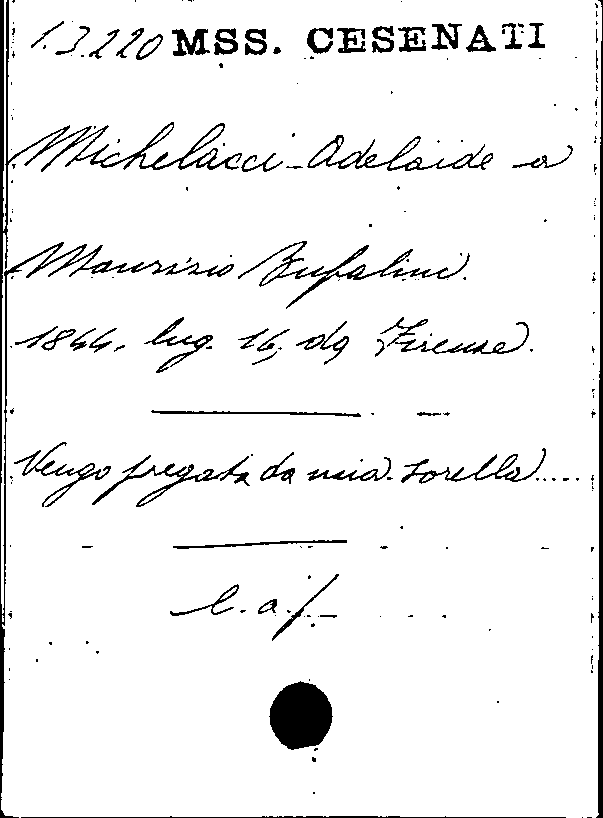 1.3.220 MSS. CESENATI
Michelacci Adelaide a
Maurizio Bufalini.
1844, lug. 16, da Firenze.
Vengo pregata da mia sorella.....
l. a f.